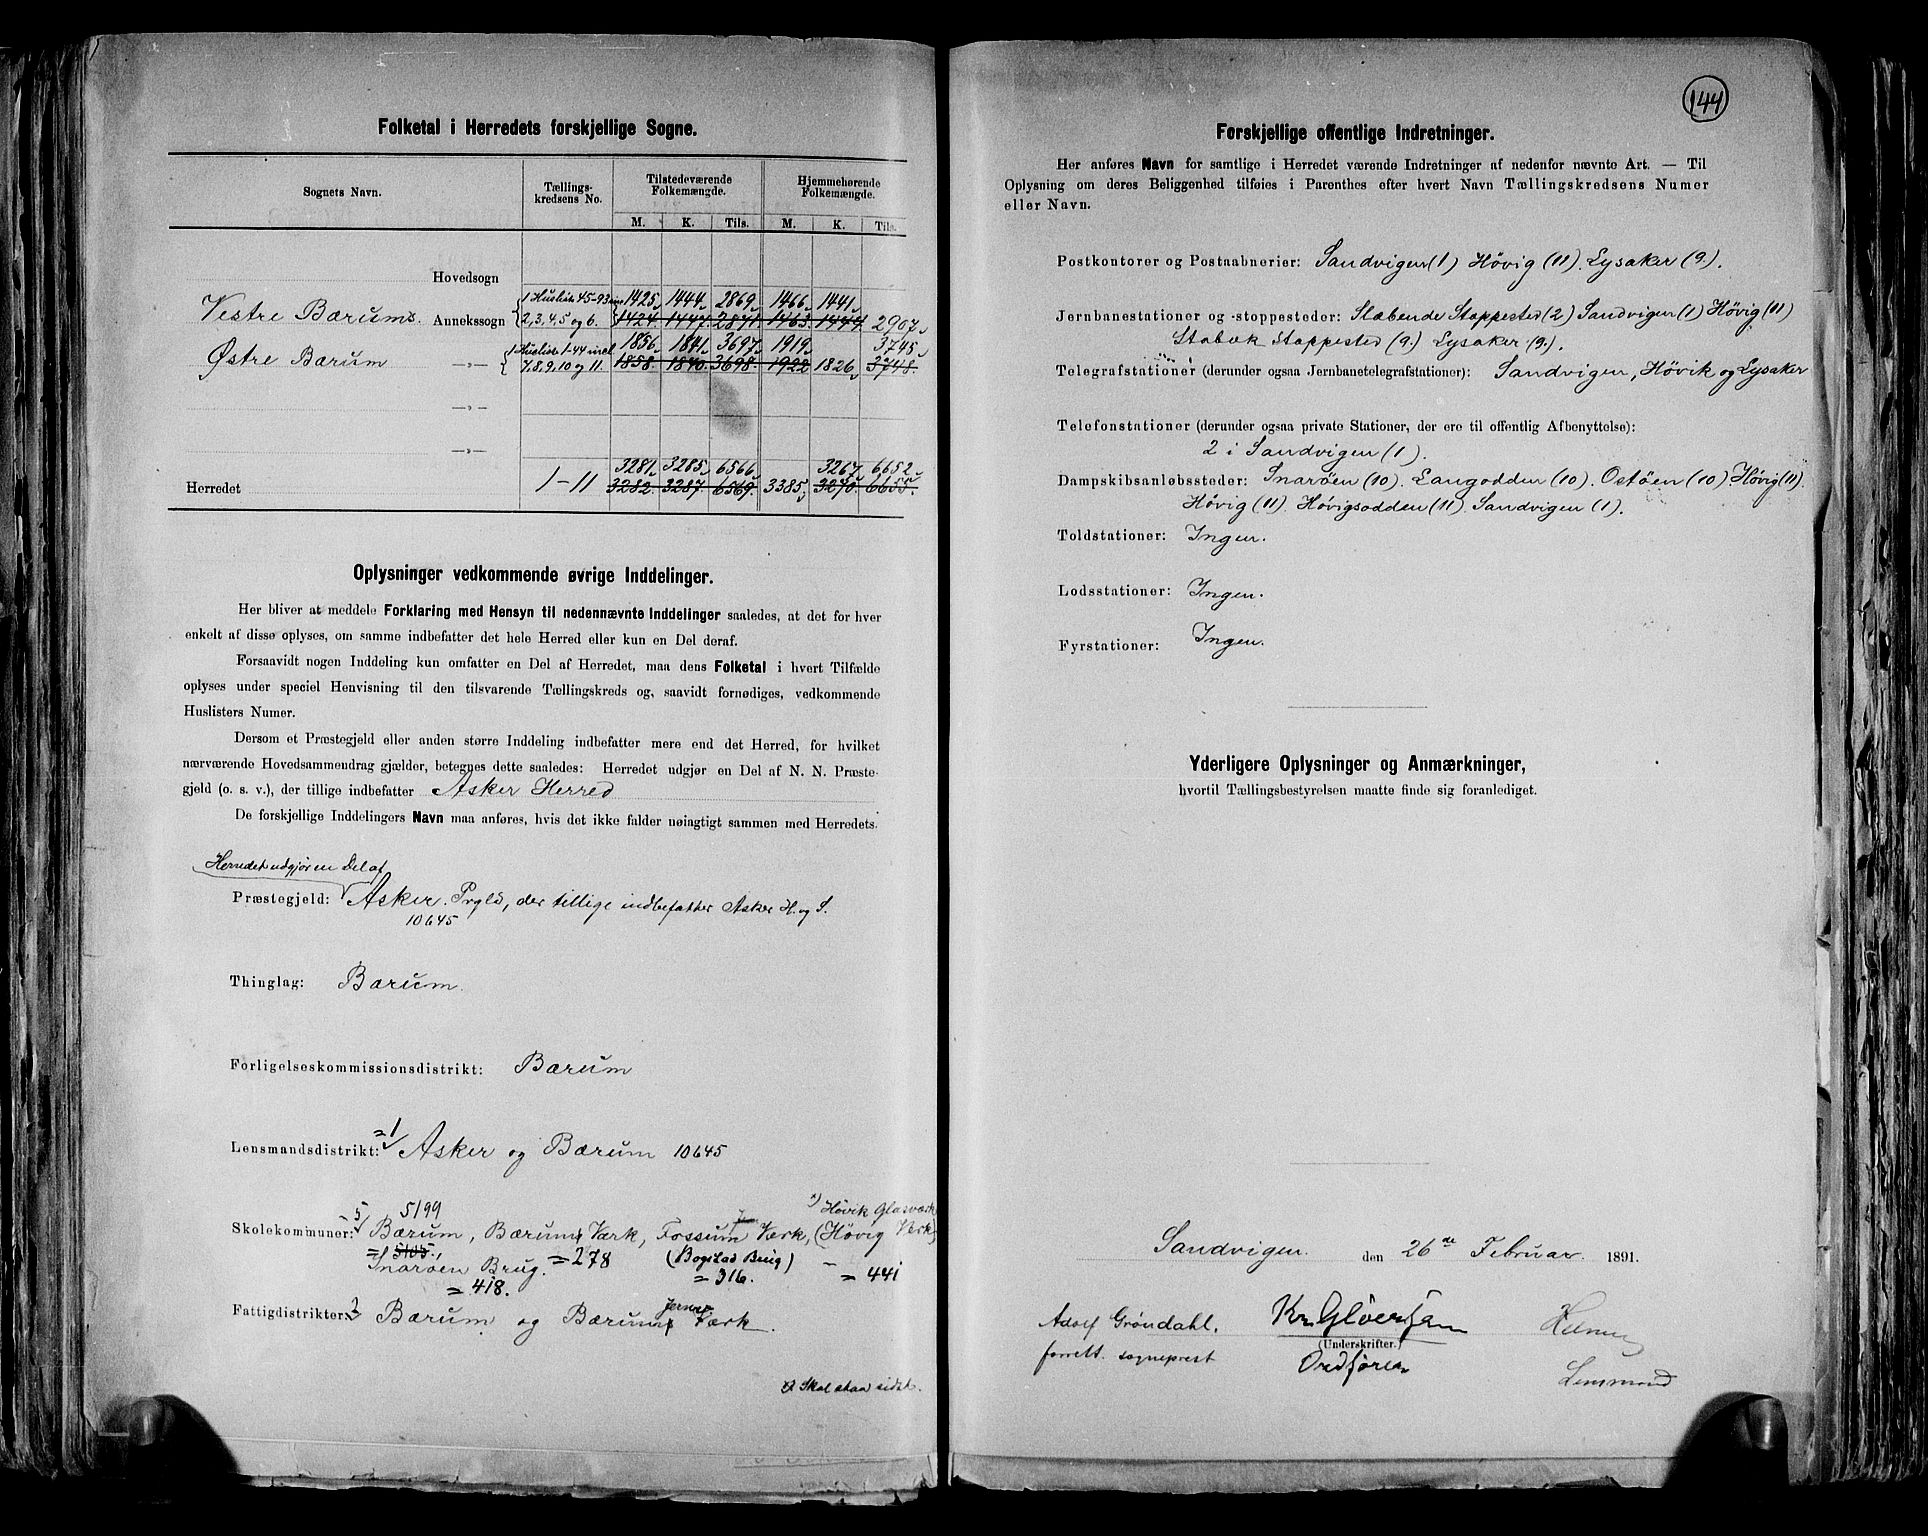 Folketal i Herredets forskjellige Sogne.
Sognets Navn.
Tællings-
kredsens No.
Tilstedeværende
Folkemængde.
Hjemmehørende
Folkemængde.
M. K. Tils. M. K. Tils.
Hovedsogn
1 Husliste 45-93 incl 1425 1444 2869 1466 1441
Vestre Bærums Annekssogn 2, 3, 4, 5 og 6. 1424. 1447. 2871. 1463. 1444. 2907
1 Husliste 1-44 incl. 1856 1841 3697 1919 3745
Østre Bærum —»— 7, 8, 9, 10 og 11. 1858. 1840. 3698. 1922 1826 3748.
—»—
—»—
3281 3285 6566 3267 6652
Herredet 1-11 3282. 3287. 6569. 3385 3270. 6655.
Oplysninger vedkommende øvrige Inddelinger.
Her bliver at meddele Forklaring med Hensyn til nedennævnte Inddelinger saaledes, at det for hver
enkelt af disse oplyses, om samme indbefatter det hele Herred eller kun en Del deraf.
Forsaavidt nogen Inddeling kun omfatter en Del af Herredet, maa dens Folketal i hvert Tilfælde
oplyses under speciel Henvisning til den tilsvarende Tællingskreds og, saavidt fornødiges, vedkommende
Huslisters Numer.
Dersom et Præstegjeld eller anden større Inddeling indbefatter mere end det Herred, for hvilket
nærværende Hovedsammendrag gjælder, betegnes dette saaledes: Herredet udgjør en Del af N. N. Præste-
gjeld (o. s. v.), der tillige indbefatter Asker Herred
De forskjellige Inddelingers Navn maa anføres, hvis det ikke falder nøiagtigt sammen med Herredets.
Herredet udgjør en Del af
Præstegjeld: Asker Prgld, der tillige indbefatter Asker H. og S.
10645
Thinglag: Bærum.
Forligelseskommissionsdistrikt: Bærum
= 1
Lensmandsdistrikt: Asker og Bærum 10645
5 5199 Høvik Glasværk
Skolekommuner: Bærum, Bærums Værk, Fossum Værk, (Høvig Verk)
= 5105. = 278 (Bogstad Brug) = 441
Snarøen Brug. = 316.
= 418.
Jernv
Fattigdistrikter: 2 Bærum og Bærums Værk.
Skal staa sidst.
144
Forskjellige offentlige Indretninger.
Her anføres Navn for samtlige i Herredet værende Indretninger af nedenfor nævnte Art. — Til
Oplysning om deres Beliggenhed tilføies i Parenthes efter hvert Navn Tællingskredsens Numer
eller Navn.
Postkontorer og Postaabnerier: Sandvigen (1) Høvig (11). Lysaker (9.).
Jernbanestationer og -stoppesteder: Slæbende Stoppested (2) Sandvigen (1) Høvig (11)
Stabæk Stoppested (9.) Lysaker (9.).
Telegrafstationer (derunder ogsaa Jernbanetelegrafstationer): Sandvigen, Høvik og Lysaker
Telefonstationer (derunder ogsaa private Stationer, der ere til offentlig Afbenyttelse):
2 i Sandvigen (1).
Dampskibsanløbssteder: Snarøen (10). Langodden (10). Ostøen (10) Høvig (11)
Høvig (11). Høvigsodden (11). Sandvigen (1).
Toldstationer: Ingen.
Lodsstationer: Ingen.
Fyrstationer: Ingen.
Yderligere Oplysninger og Anmærkninger,
hvortil Tællingsbestyrelsen maatte finde sig foranlediget.
Sandvigen. den 26de Februar. 1891.
Adolf Grøndahl. Kr. Gløersen
forrett. sogneprest (Underskrifter.)
Ordfører Lensmand